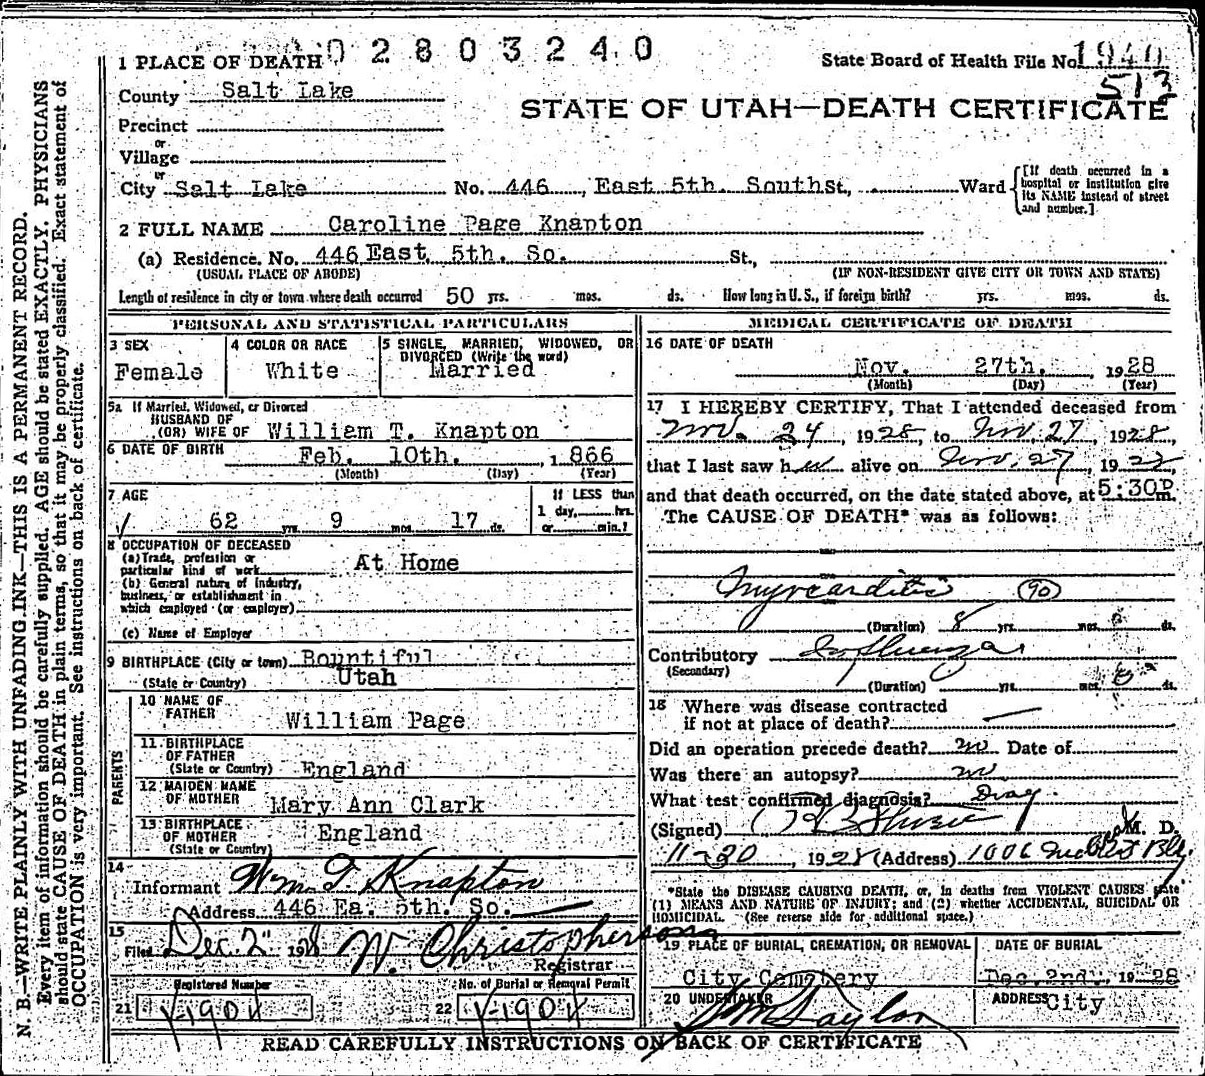 N. B.—WRITE PLAINLY WITH UNFADING INK—THIS IS A PERMANENT RECORD.
Every item of information should be carefully supplied. AGE should be stated EXACTLY. PHYSICIANS
should state CAUSE OF DEATH in plain terms, so that it may be properly classified. Exact statement of
OCCUPATION is very important. See instructions on back of certificate.
02803240
1 PLACE OF DEATH
State Board of Health File No. 1940
513
County Salt Lake
STATE OF UTAH—DEATH CERTIFICATE
Precinct
or
Village
or
City Salt Lake No. 446, East 5th. South St., Ward
[If death occurred in a
hospital or institution give
its NAME instead of street
and number.]
2 FULL NAME Caroline Page Knapton
(a) Residence. No. 446 East 5th. So. St.,
(USUAL PLACE OF ABODE) (IF NON-RESIDENT GIVE CITY OR TOWN AND STATE)
Length of residence in city or town where death occurred 50 yrs. mos. ds. How long in U. S., if foreign birth? yrs. mos. ds.
PERSONAL AND STATISTICAL PARTICULARS
3 SEX
Female
4 COLOR OR RACE
White
5 SINGLE, MARRIED, WIDOWED, OR
DIVORCED (Write the word)
Married
5a If Married, Widowed, or Divorced
HUSBAND OF
(OR) WIFE OF William T. Knapton
6 DATE OF BIRTH Feb. 10th. , 1866
(Month) (Day) (Year)
7 AGE
62 yrs. 9 mos. 17 ds.
If LESS than
1 day, hrs.
or min.?
8 OCCUPATION OF DECEASED
(a) Trade, profession or
particular kind of work At Home
(b) General nature of industry,
business, or establishment in
which employed (or employer)
(c) Name of Employer
9 BIRTHPLACE (City or town) Bountiful
(State or Country) Utah
PARENTS
10 NAME OF
FATHER William Page
11 BIRTHPLACE
OF FATHER
(State or Country) England
12 MAIDEN NAME
OF MOTHER Mary Ann Clark
13 BIRTHPLACE
OF MOTHER
(State or Country) England
14
Informant Wm. T. Knapton
Address 446 Ea. 5th. So.
15
Filed Dec. 2 1928 W. Christopherson
Registrar
Registered Number
21 1904
No. of Burial or Removal Permit
22 1904
MEDICAL CERTIFICATE OF DEATH
16 DATE OF DEATH
Nov. 27th. 1928
(Month) (Day) (Year)
17 I HEREBY CERTIFY, That I attended deceased from
Nov. 24, 1928, to Nov. 27, 1928,
that I last saw her alive on Nov. 27, 1928,
and that death occurred, on the date stated above, at 5:30P m.
The CAUSE OF DEATH* was as follows:
Myocarditis (90)
(Duration) 8 yrs. mos. ds.
Contributory Influenza
(Secondary)
(Duration) yrs. mos. ds.
18 Where was disease contracted
if not at place of death? —
Did an operation precede death? no Date of
Was there an autopsy? no
What test confirmed diagnosis?
(Signed) M. D.
11-30, 1928 (Address) 1006
*State the DISEASE CAUSING DEATH, or, in deaths from VIOLENT CAUSES state
(1) MEANS AND NATURE OF INJURY; and (2) whether ACCIDENTAL, SUICIDAL OR
HOMICIDAL. (See reverse side for additional space.)
19 PLACE OF BURIAL, CREMATION, OR REMOVAL
City Cemetery
DATE OF BURIAL
Dec. 2nd. 1928
20 UNDERTAKER
Taylor
ADDRESS City
READ CAREFULLY INSTRUCTIONS ON BACK OF CERTIFICATE